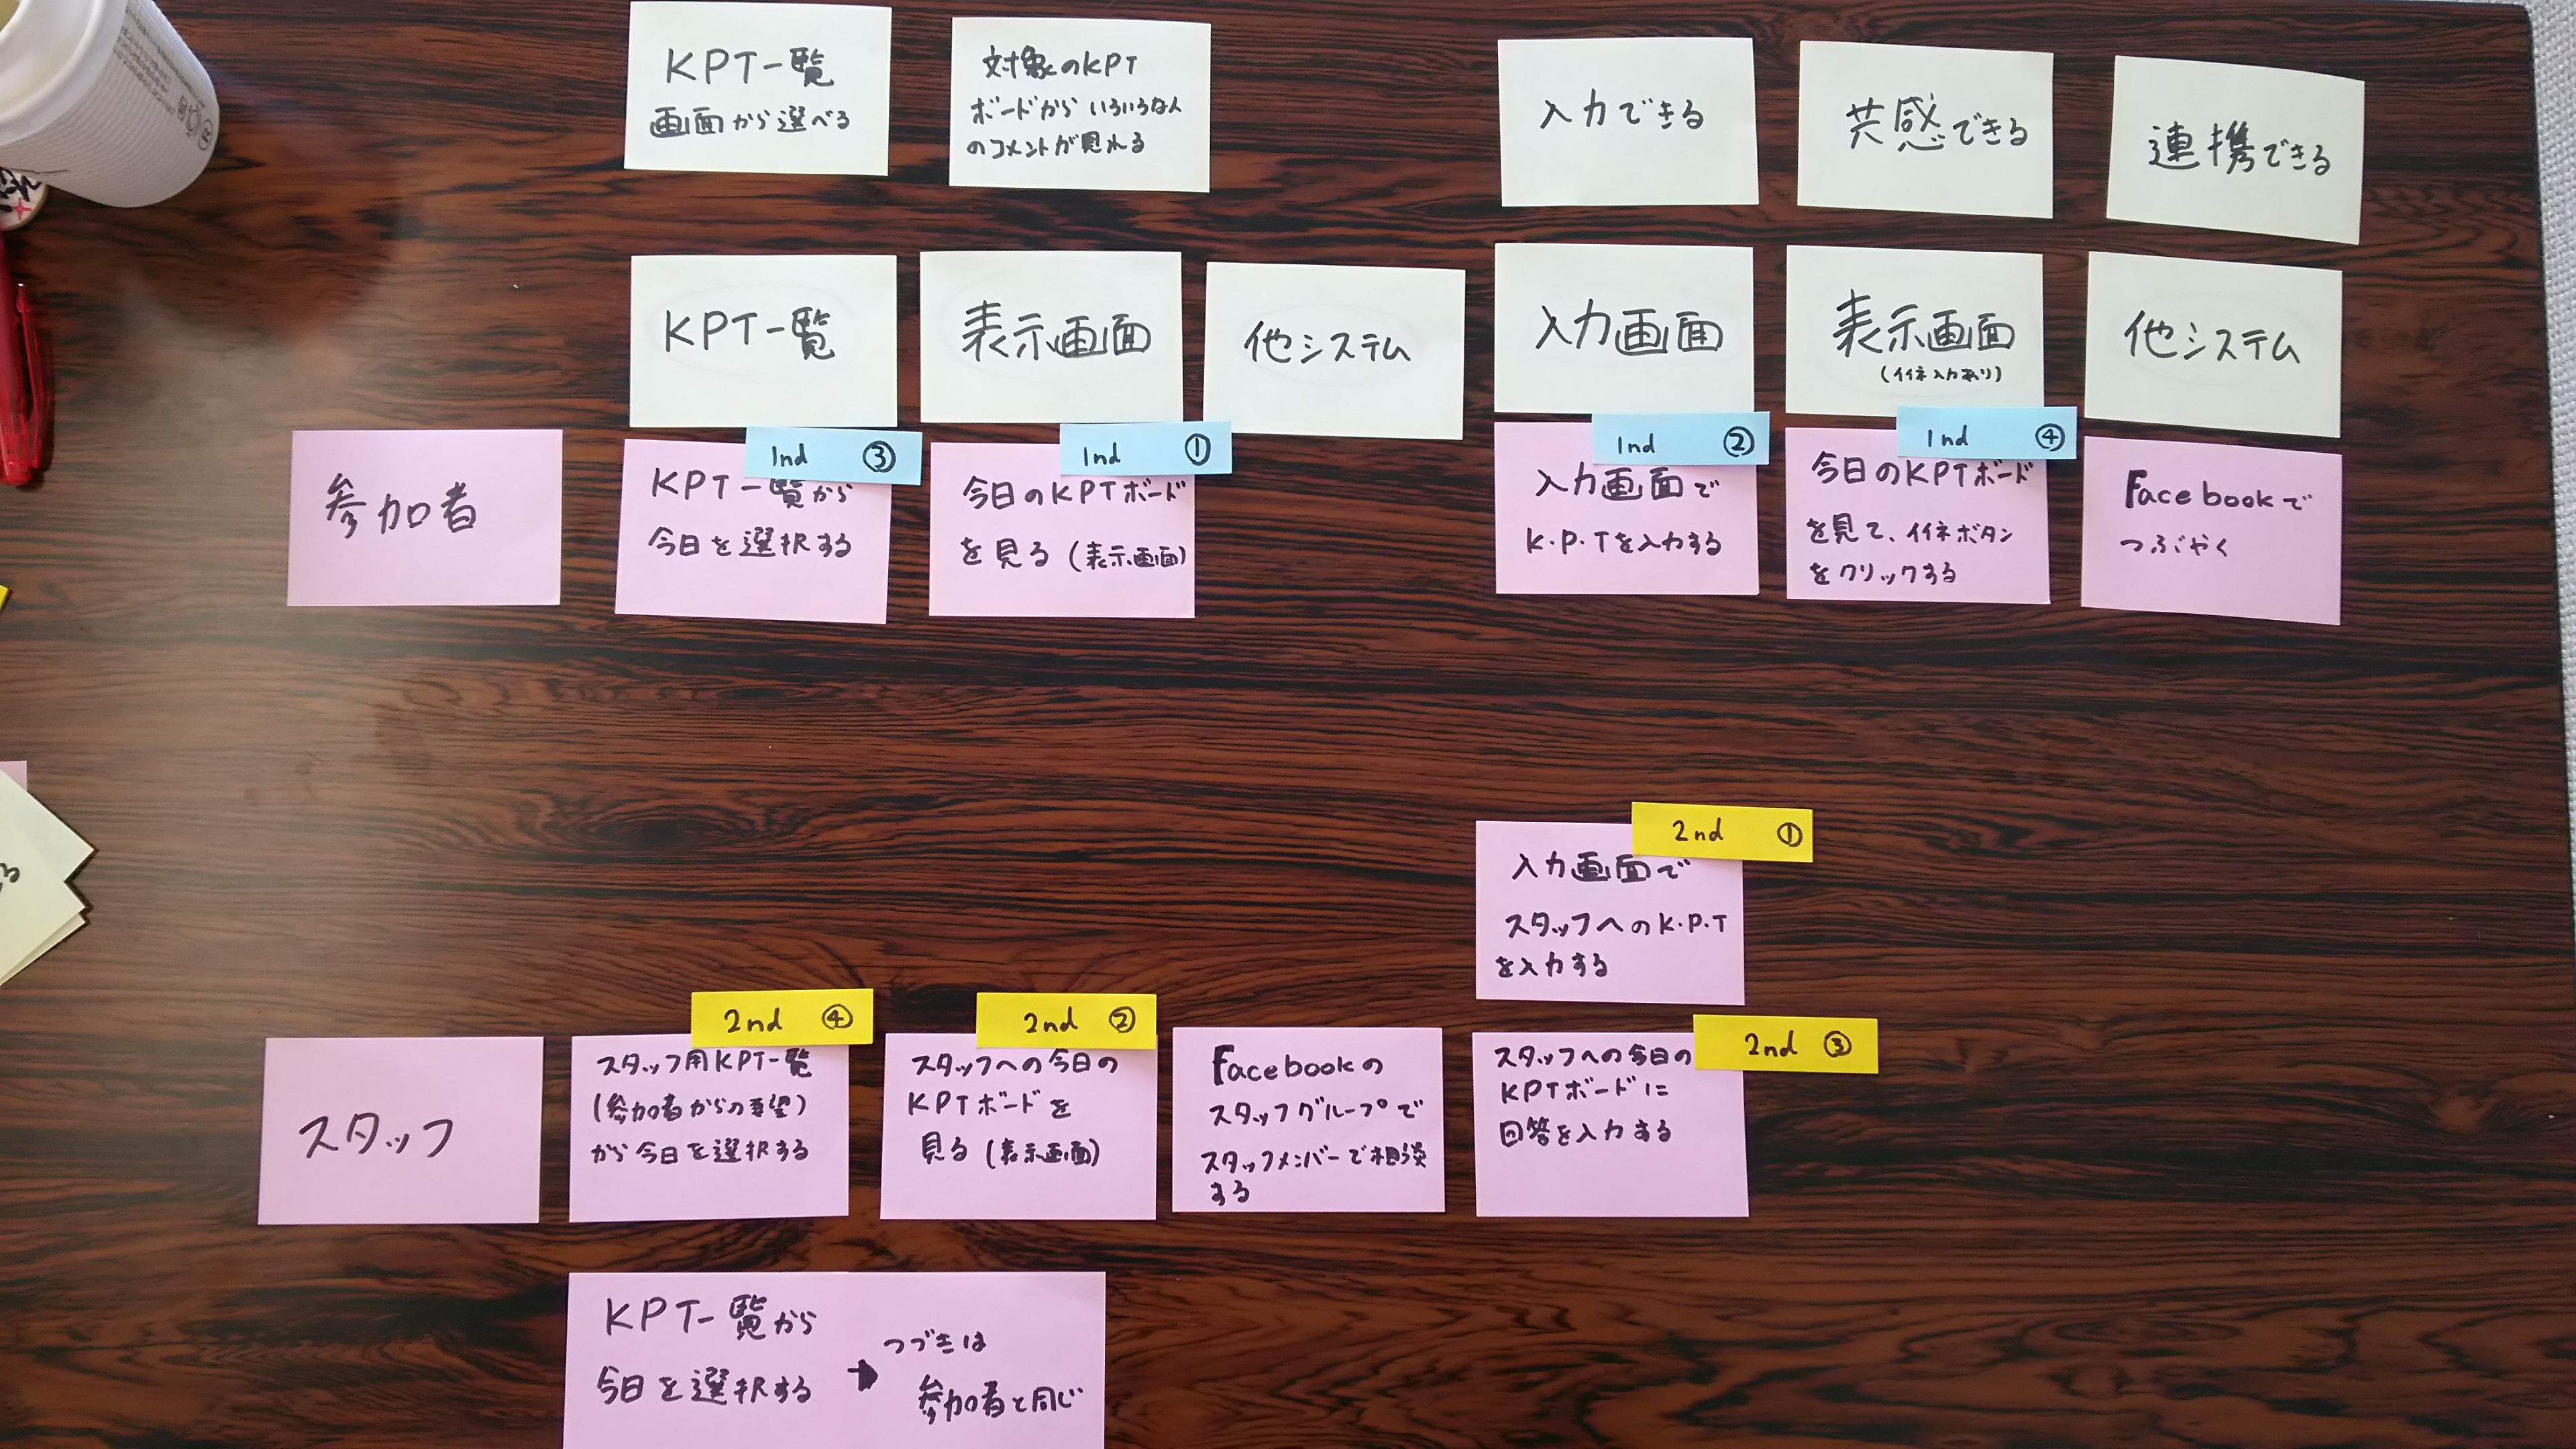 KPT一覧
画面から選べる
対象のKPT
ボードからいろいろな人
のコメントが見れる
入力できる
共感できる
連携できる
KPT一覧
表示画面
他システム
入力画面
表示画面
(イイネ入力あり)
他システム
参加者
1nd ③
KPT一覧から
今日を選択する
1nd ①
今日のKPTボード
を見る(表示画面)
1nd ②
入力画面で
K・P・Tを入力する
1nd ④
今日のKPTボード
を見て、イイネボタン
をクリックする
Facebookで
つぶやく
2nd ①
入力画面で
スタッフへのK・P・T
を入力する
スタッフ
2nd ④
スタッフ用KPT一覧
(参加者からの要望)
から今日を選択する
2nd ②
スタッフへの今日の
KPTボードを
見る(表示画面)
Facebookの
スタッフグループで
スタッフメンバーで相談
する
2nd ③
スタッフへの今日の
KPTボードに
回答を入力する
KPT一覧から
今日を選択する
➡
つづきは
参加者と同じ